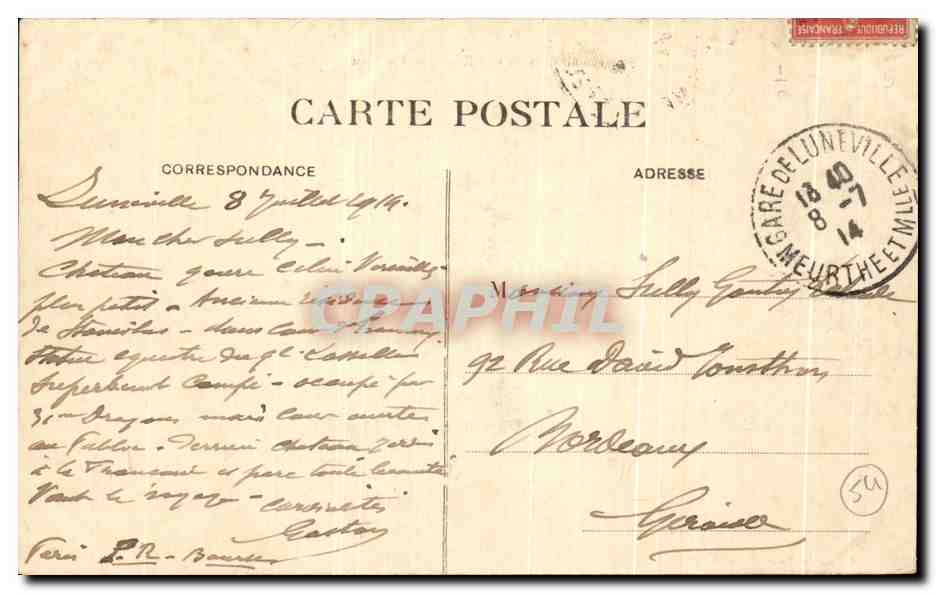 REPUBLIQUE FRANÇAISE
CARTE POSTALE
CORRESPONDANCE
ADRESSE
GARE DE LUNEVILLE
18 40
8 - 7
14
MEURTHE ET MLLE
Luneville 8 Juillet 1914.
Mon cher Sully -
Chateau genre
plus petit - Ancienne
de Stanislas - dans cour
Statue equestre du Gl Lasalle
Superbement Campé - occupé par
31me Dragons mais cour ouverte
au Public - Derriere chateau Jardin
à la Française et parc toute beauté
Vaut le voyage -
Gaston
Paris P.R. - Bourse
Monsieur Sully
92 Rue David Johnston
Bordeaux
Gironde
54
CPAPHIL